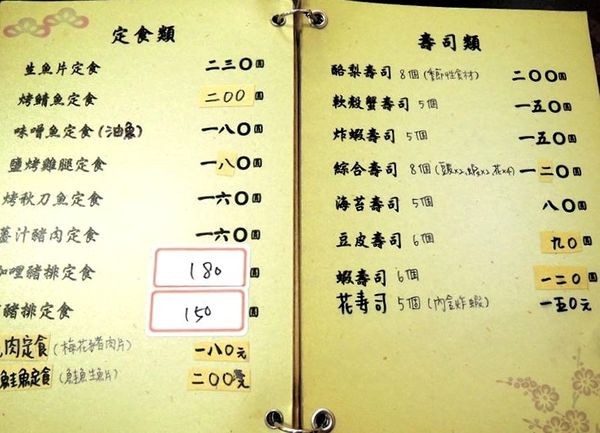 定食類
生魚片定食 二三〇圓
烤鯖魚定食 二〇〇圓
味噌魚定食(油魚) 一八〇圓
鹽烤雞腿定食 一八〇圓
烤秋刀魚定食 一六〇圓
薑汁豬肉定食 一六〇圓
咖哩豬排定食 180 圓
豬排定食 150 圓
肉定食(梅花豬肉片) 一八〇元
鮭魚定食(鮭魚生魚片) 二〇〇元
壽司類
酪梨壽司 8個(季節性食材) 二〇〇圓
軟殼蟹壽司 5個 一五〇圓
炸蝦壽司 5個 一五〇圓
綜合壽司 8個(豆皮x2,蝦x2 花x4) 一二〇圓
海苔壽司 5個 八〇圓
豆皮壽司 6個 九〇圓
蝦壽司 6個 一二〇圓
花寿司 5個(內含炸蝦) 一五〇元